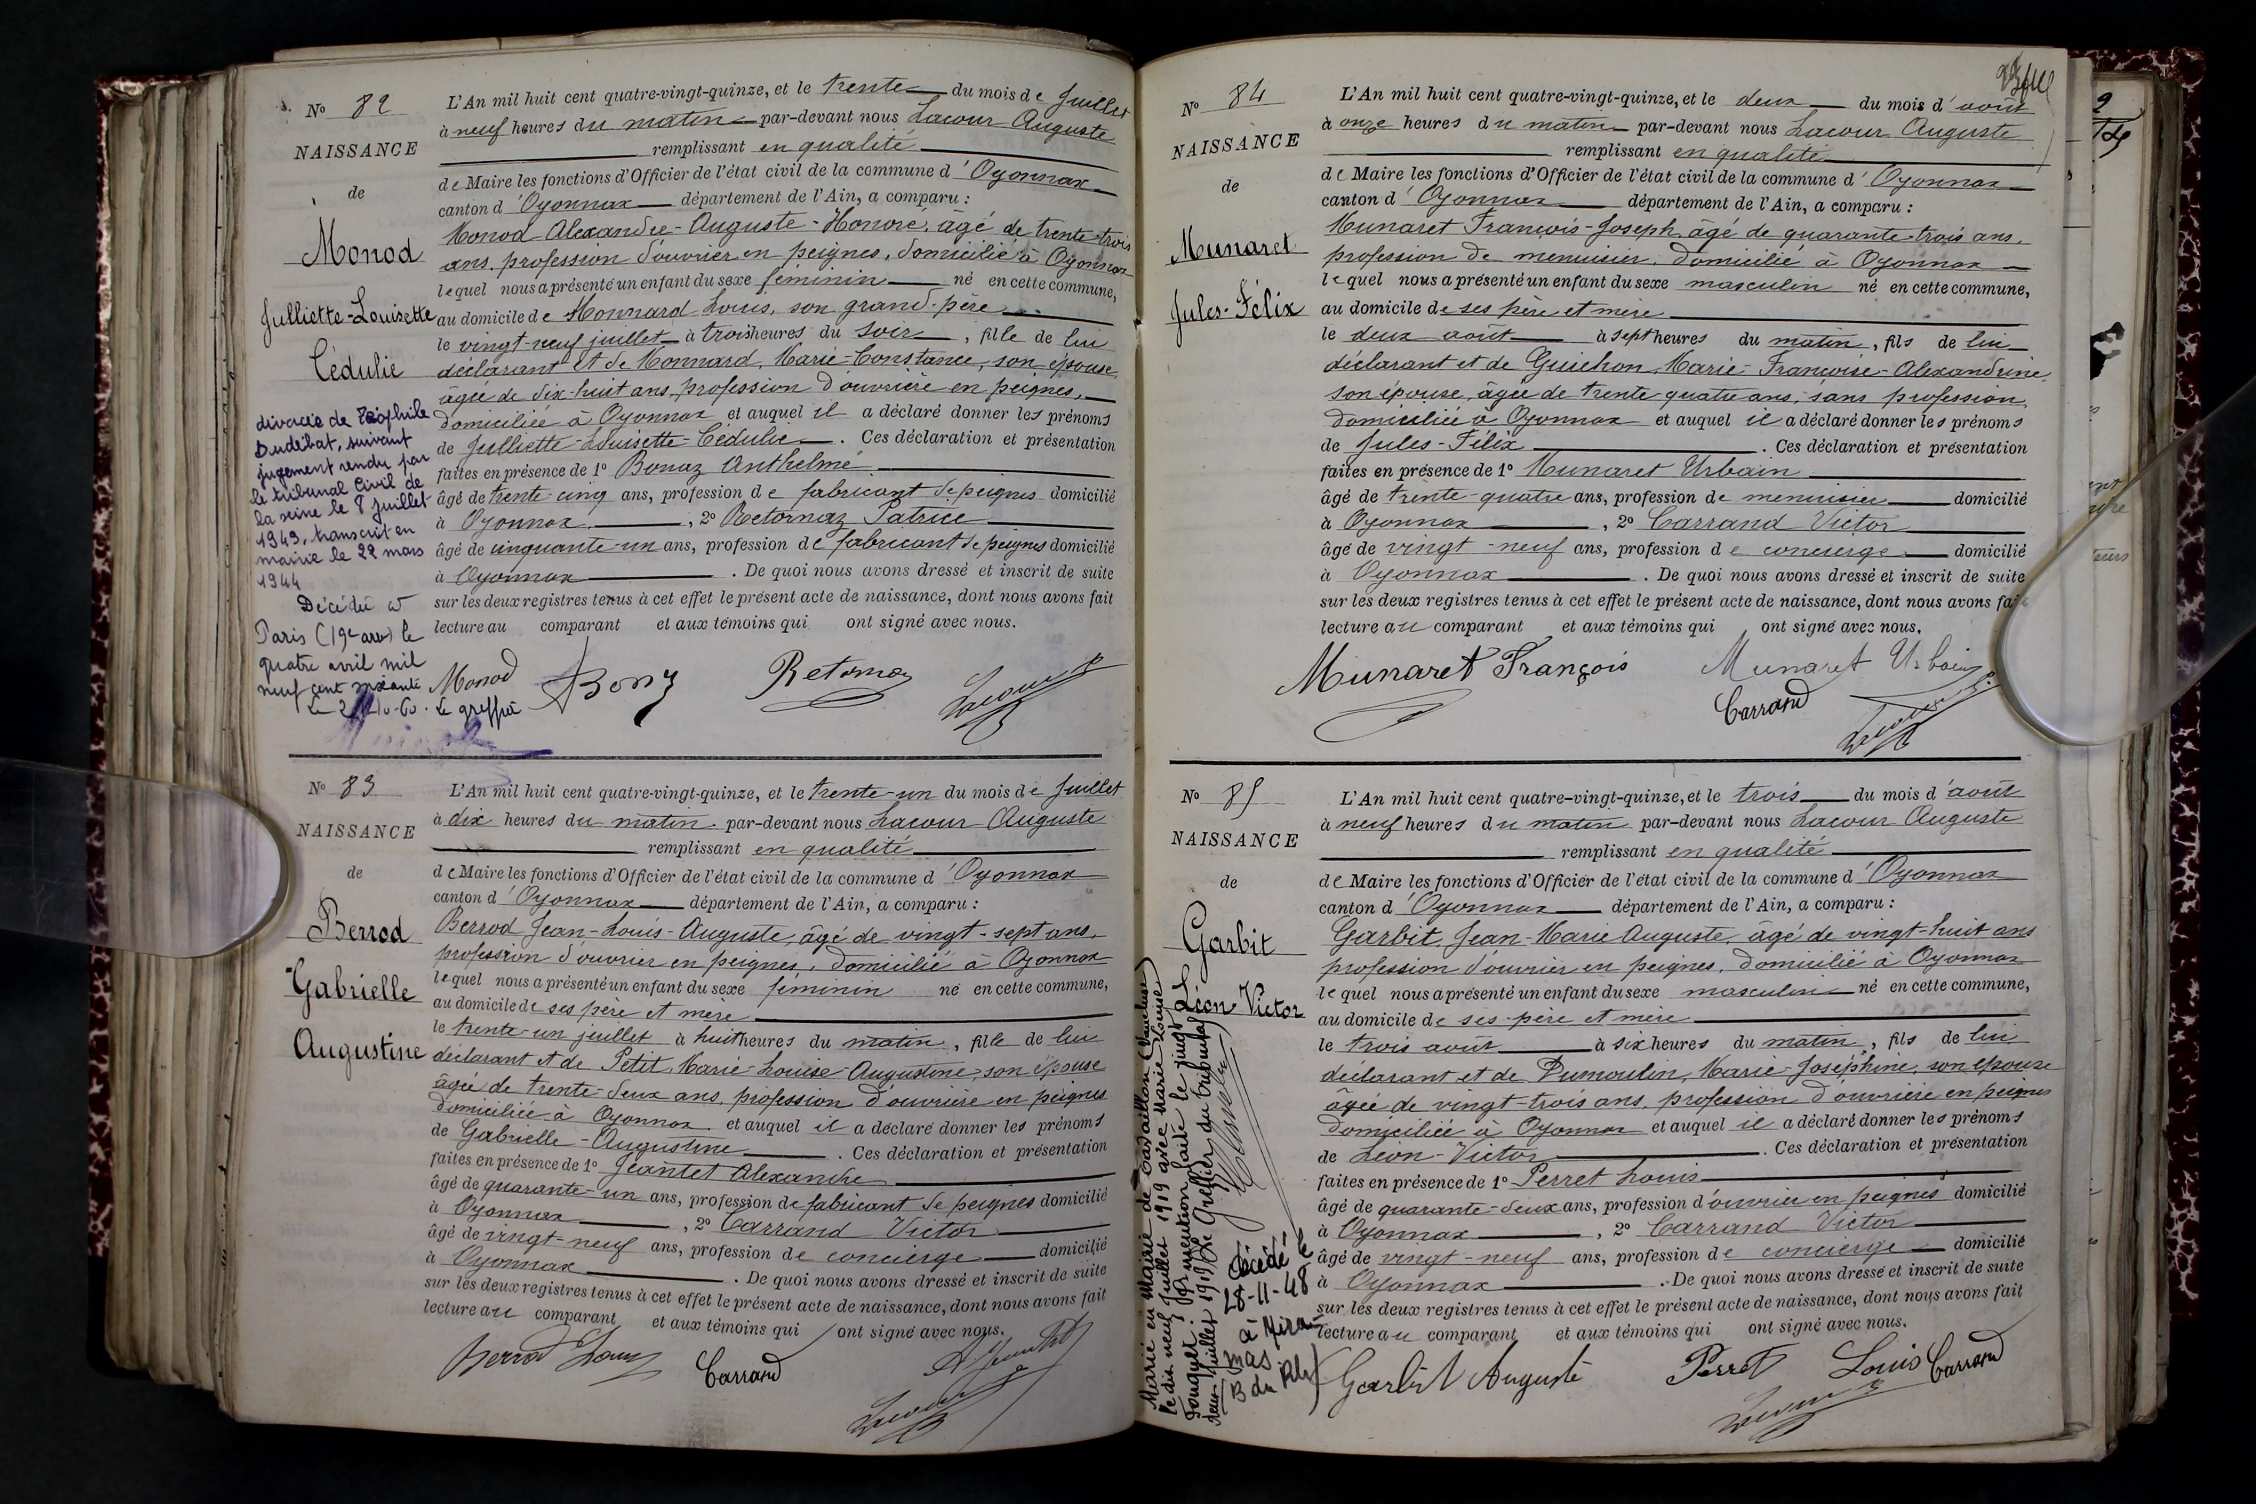 Nº 82
NAISSANCE
de
Monod
Julliette-Louisette
Cédulie
divorcée de Téophile
Dudébat, suivant
jugement rendu par
le tribunal Civil de
la seine le 8 juillet
1943, transcrit en
mairie le 22 mars
1944
Décédée à
Paris (19e arrt) le
quatre avril mil
neuf cent soixante
Le greffier
L'An mil huit cent quatre-vingt-quinze, et le trente du mois de Juillet
à neuf heures du matin par-devant nous Lacour Auguste
remplissant en qualité
de Maire les fonctions d'Officier de l'état civil de la commune d'Oyonnax
canton d'Oyonnax département de l'Ain, a comparu :
Monod Alexandre-Auguste-Honoré, âgé de trente-trois
ans, profession d'ouvrier en peignes, domicilié à Oyonnax
lequel nous a présenté un enfant du sexe féminin né en cette commune,
au domicile de Monnard Louis, son grand-père
le vingt-neuf juillet à trois heures du soir, fille de lui
déclarant et de Monnard, Marie-Constance, son épouse,
âgée de dix-huit ans, profession d'ouvrière en peignes,
domiciliée à Oyonnax et auquel il a déclaré donner les prénoms
de Julliette-Louisette-Cédulie. Ces déclaration et présentation
faites en présence de 1º Bonaz Anthelme
âgé de trente-cinq ans, profession de fabricant de peignes domicilié
à Oyonnax, 2º Retornaz Patrice
âgé de cinquante-un ans, profession de fabricant de peignes domicilié
à Oyonnax. De quoi nous avons dressé et inscrit de suite
sur les deux registres tenus à cet effet le présent acte de naissance, dont nous avons fait
lecture au comparant et aux témoins qui ont signé avec nous.
Monod Bonaz Retornaz Lacour
Nº 83
NAISSANCE
de
Berrod
Gabrielle
Augustine
L'An mil huit cent quatre-vingt-quinze, et le trente-un du mois de Juillet
à dix heures du matin par-devant nous Lacour Auguste
remplissant en qualité
de Maire les fonctions d'Officier de l'état civil de la commune d'Oyonnax
canton d'Oyonnax département de l'Ain, a comparu :
Berrod Jean-Louis-Auguste, âgé de vingt-sept ans,
profession d'ouvrier en peignes, domicilié à Oyonnax
lequel nous a présenté un enfant du sexe féminin né en cette commune,
au domicile de ses père et mère
le trente-un juillet à huit heures du matin, fille de lui
déclarant et de Petit Marie-Louise-Augustine, son épouse
âgée de trente-deux ans, profession d'ouvrière en peignes
domiciliée à Oyonnax et auquel il a déclaré donner les prénoms
de Gabrielle-Augustine. Ces déclaration et présentation
faites en présence de 1º Jeantet Alexandre
âgé de quarante-un ans, profession de fabricant de peignes domicilié
à Oyonnax, 2º Carrand Victor
âgé de vingt-neuf ans, profession de concierge domicilié
à Oyonnax. De quoi nous avons dressé et inscrit de suite
sur les deux registres tenus à cet effet le présent acte de naissance, dont nous avons fait
lecture au comparant et aux témoins qui ont signé avec nous.
Berrod Louis Carrand A. Jeantet
Lacour
Nº 84
NAISSANCE
de
Munaret
Jules-Félix
L'An mil huit cent quatre-vingt-quinze, et le deux du mois d'août
à onze heures du matin par-devant nous Lacour Auguste
remplissant en qualité
de Maire les fonctions d'Officier de l'état civil de la commune d'Oyonnax
canton d'Oyonnax département de l'Ain, a comparu :
Munaret François-Joseph, âgé de quarante-trois ans,
profession de menuisier, domicilié à Oyonnax
lequel nous a présenté un enfant du sexe masculin né en cette commune,
au domicile de ses père et mère
le deux août à sept heures du matin, fils de lui
déclarant et de Guichon, Marie-Françoise-Alexandrine,
son épouse, âgée de trente quatre ans, sans profession,
domiciliée à Oyonnax et auquel il a déclaré donner les prénoms
de Jules-Félix. Ces déclaration et présentation
faites en présence de 1º Munaret Urbain
âgé de trente-quatre ans, profession de menuisier domicilié
à Oyonnax, 2º Carrand Victor
âgé de vingt-neuf ans, profession de concierge domicilié
à Oyonnax. De quoi nous avons dressé et inscrit de suite
sur les deux registres tenus à cet effet le présent acte de naissance, dont nous avons fait
lecture au comparant et aux témoins qui ont signé avec nous.
Munaret François Munaret Urbain
Carrand Lacour
Nº 85
NAISSANCE
de
Garbit
Léon Victor
Marié en Mairie de Cavaillon (Vaucluse)
le dix neuf Juillet 1919 avec Marie Louise
Fouquet. Par mention faite le vingt
neuf Juillet 1919. Le Greffier du tribunal
Décédé le
28-11-48
à Mira-
mas
(B du Rh)
L'An mil huit cent quatre-vingt-quinze, et le trois du mois d'août
à neuf heures du matin par-devant nous Lacour Auguste
remplissant en qualité
de Maire les fonctions d'Officier de l'état civil de la commune d'Oyonnax
canton d'Oyonnax département de l'Ain, a comparu :
Garbit, Jean-Marie Auguste, âgé de vingt-huit ans
profession d'ouvrier en peignes, domicilié à Oyonnax
lequel nous a présenté un enfant du sexe masculin né en cette commune,
au domicile de ses père et mère
le trois août à six heures du matin, fils de lui
déclarant et de Dumoulin, Marie-Joséphine, son épouse
âgée de vingt-trois ans, profession d'ouvrière en peignes
domiciliée à Oyonnax et auquel il a déclaré donner les prénoms
de Léon-Victor. Ces déclaration et présentation
faites en présence de 1º Perret Louis
âgé de quarante-deux ans, profession d'ouvrier en peignes domicilié
à Oyonnax, 2º Carrand Victor
âgé de vingt-neuf ans, profession de concierge domicilié
à Oyonnax. De quoi nous avons dressé et inscrit de suite
sur les deux registres tenus à cet effet le présent acte de naissance, dont nous avons fait
lecture au comparant et aux témoins qui ont signé avec nous.
Garbit Auguste Perret Louis Carrand
Lacour